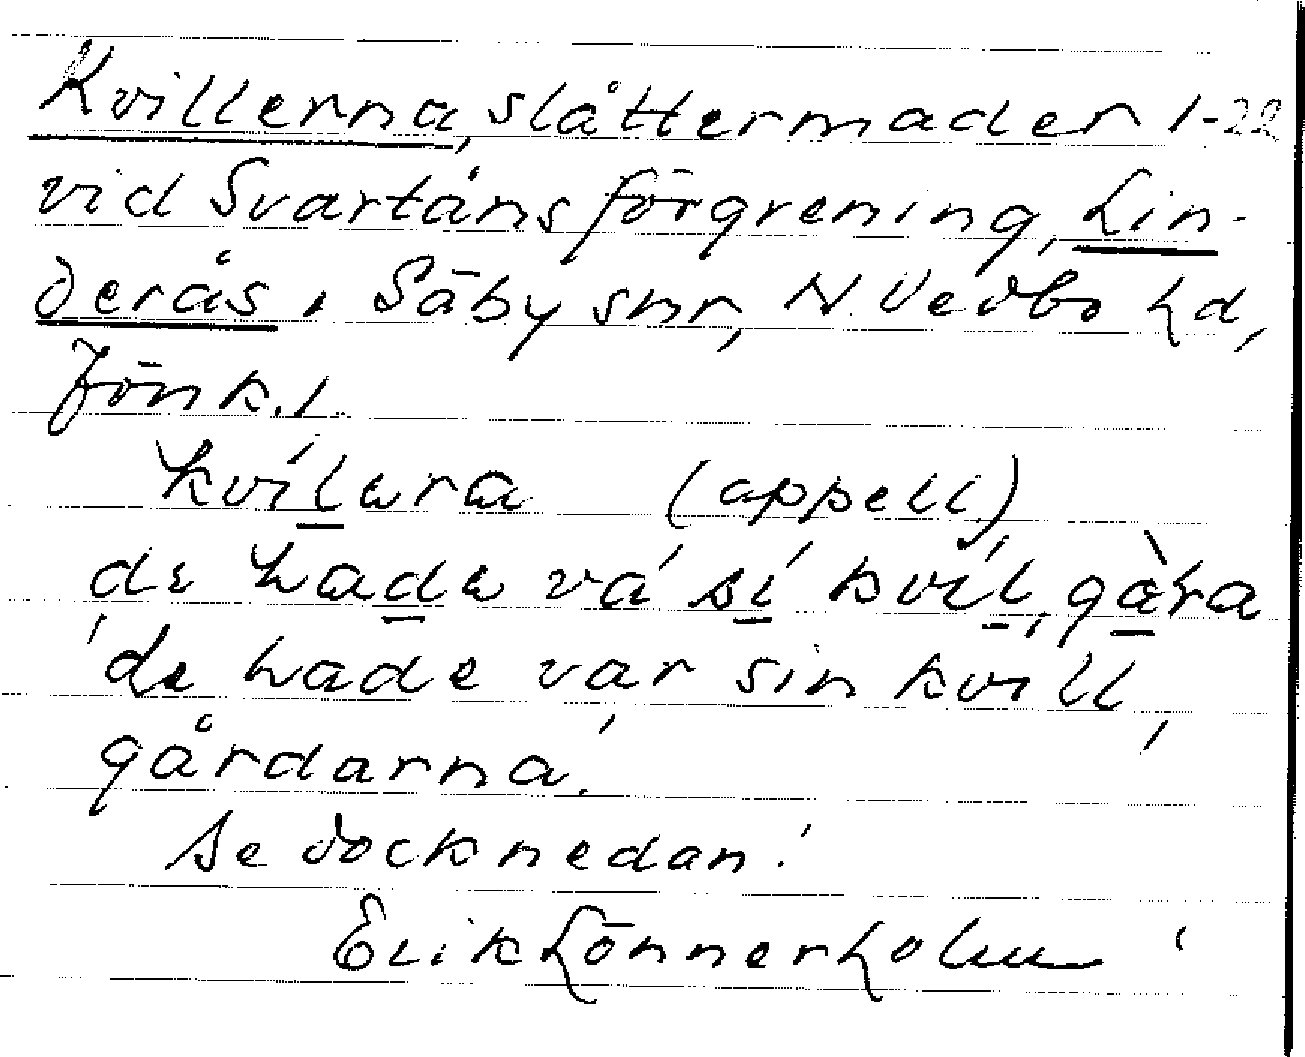 Kvillerna, slåttermader 1-22
vid Svartåns förgrening, Lin-
derås i Säby snr, N. Vedbo hd,
Jönk. l.
kvílɯra (appell)
de hadɯ vá sí kvíl, gàra
'de hade var sin kvill,
gårdarna.'
Se dock nedan!
Erik Lönnerholm